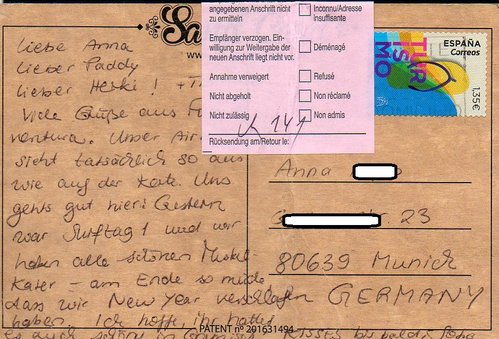 Sa
www.
angegebenen Anschrift nicht zu ermitteln
Inconnu/Adresse Insuffisante
Empfänger verzogen. Ein-
willigung zur Weitergabe der
neuen Anschrift liegt nicht vor.
Déménagé
Annahme verweigert
Refusé
Nicht abgeholt
Non réclamé
Nicht zulässig
Non admis
Rücksendung am/Retour le:
14 1
ESPAÑA
Correos
TUR
IS
MO
1,35€
Liebe Anna
Lieber Paddy
Lieber
Viele Grüße aus Fu
ventura. Unser Air
sieht tatsächlich so aus
wie auf der Karte. Uns
gehts gut hier! Gestern
war Surftag 1 und wir
haben alle schönen Muskel-
Kater - am Ende so müde
dass wir New Year verschlafen
haben. Ich hoffe, ihr hattet
es auch schön in
Kisses bis bald!
Anna
23
80639 Munich
GERMANY
PATENT nº 201631494